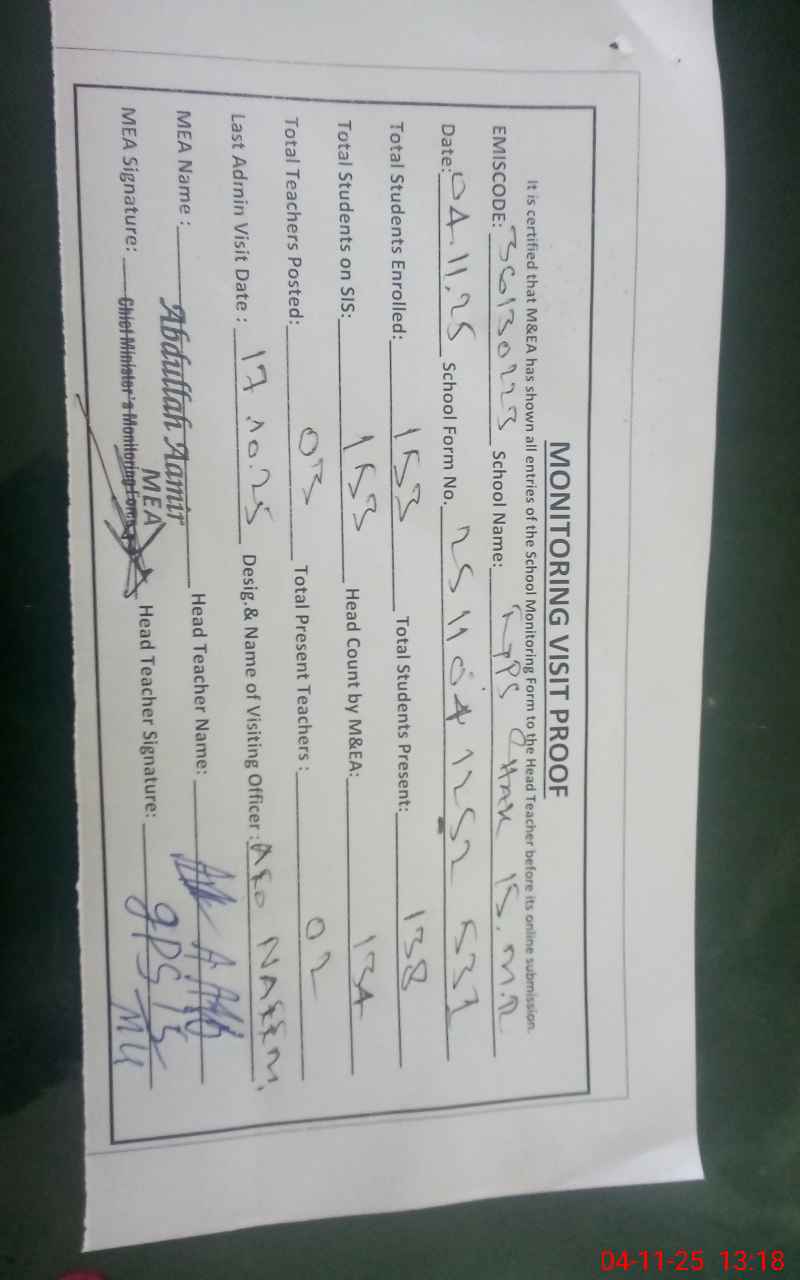 MONITORING VISIT PROOF
It is certified that M&EA has shown all entries of the School Monitoring Form to the Head Teacher before its online submission.
EMISCODE: 36130223 School Name: GPS Chak 15. M.R
Date: 04.11.25 School Form No. 2511041252 531
Total Students Enrolled: 153 Total Students Present: 138
Total Students on SIS: 153 Head Count by M&EA: 134
Total Teachers Posted: 03 Total Present Teachers : 02
Last Admin Visit Date : 17.10.25 Desig.& Name of Visiting Officer : AEO NAEEM
MEA Name : Abdullah Aamir Head Teacher Name:
MEA
MEA Signature: Chief Minister's Monitoring Force Head Teacher Signature: GPS 15 MR
04-11-25 13:18